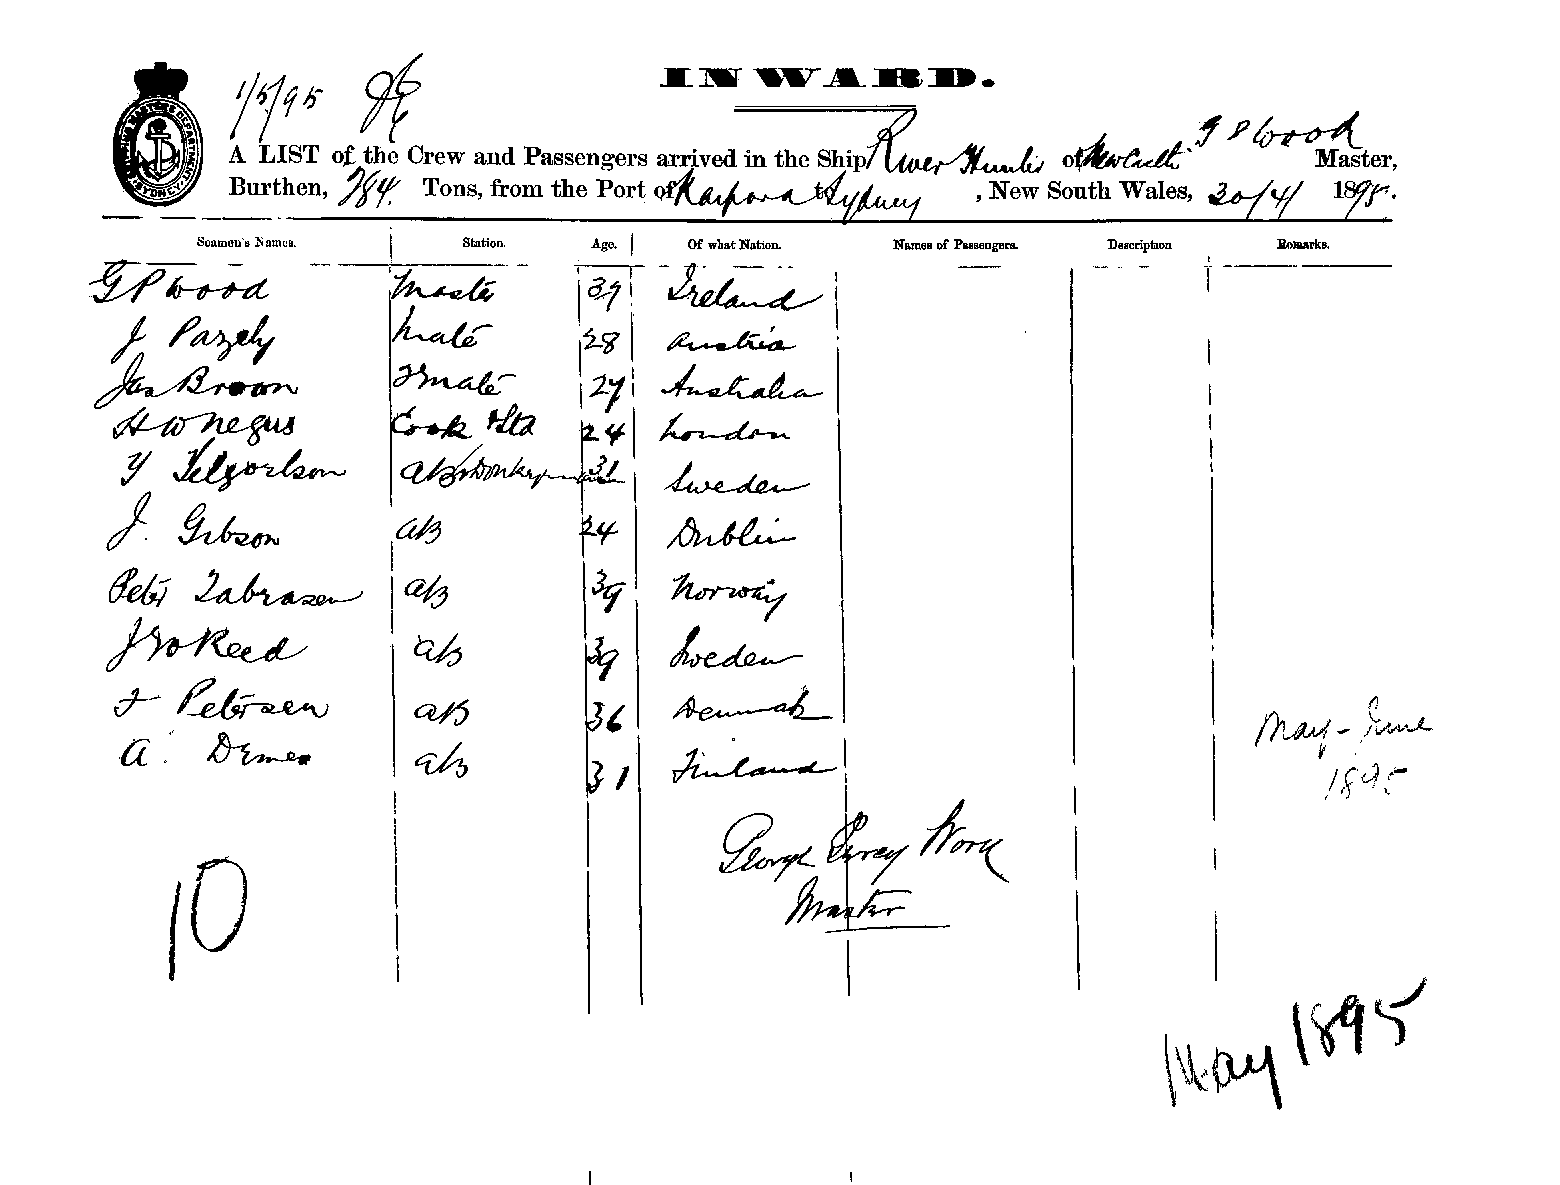 INWARD.
1/5/95
G P Wood
A LIST of the Crew and Passengers arrived in the Ship River Hunter of Newcastle Master,
Burthen, 784 Tons, from the Port of Kaipara to Sydney, New South Wales, 30/4/ 1895.
Seamen's Names. Station. Age. Of what Nation. Names of Passengers. Description Remarks.
G P Wood Master 39 Ireland
J Mate 28 Austria
Jas Brown 2 Mate 27 Australia
H W Negus Cook & Std 24 London
AB & Donkeyman 31 Sweden
J. Gibson AB 24 Dublin
Peter AB 39 Norway
Reed AB 39 Sweden
Petersen AB 36 Denmark
A. AB 31 Finland
May - June
1895
George Wood
Master
10
May 1895